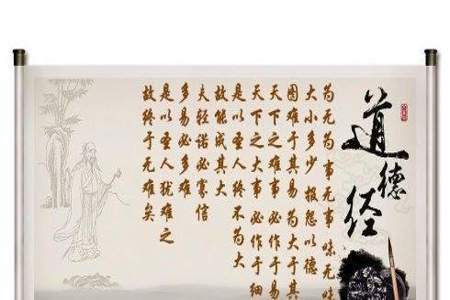 道德经
为无为 事无事 味无味
大小多少 报怨以德
图难于其易 为大于其细
天下之难事 必作于易
天下之大事 必作于细
是以圣人终不为大
故能成其大
夫轻诺必寡信
多易必多难
是以圣人犹难之
故终于无难矣